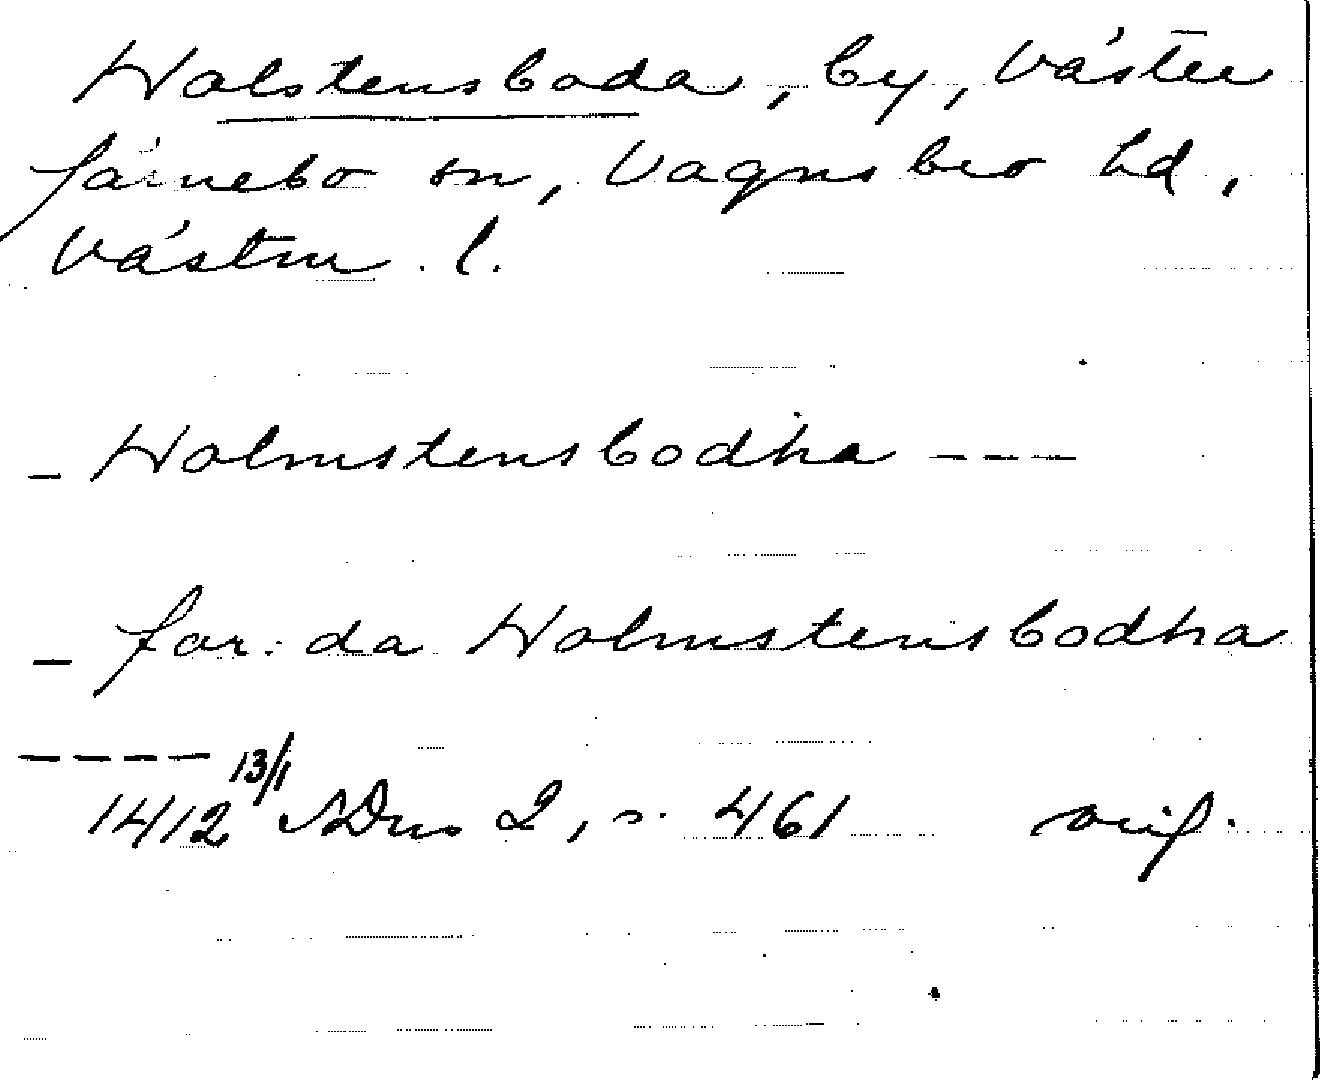 Holstensboda, by, Väster
färnebo sn, Vagnsbro hd,
Västm. l.
– Holmstensbodha – – –
– for:da Holmstensbodha
– – – –
1412 13/1 SDns 2, s. 461 orig.